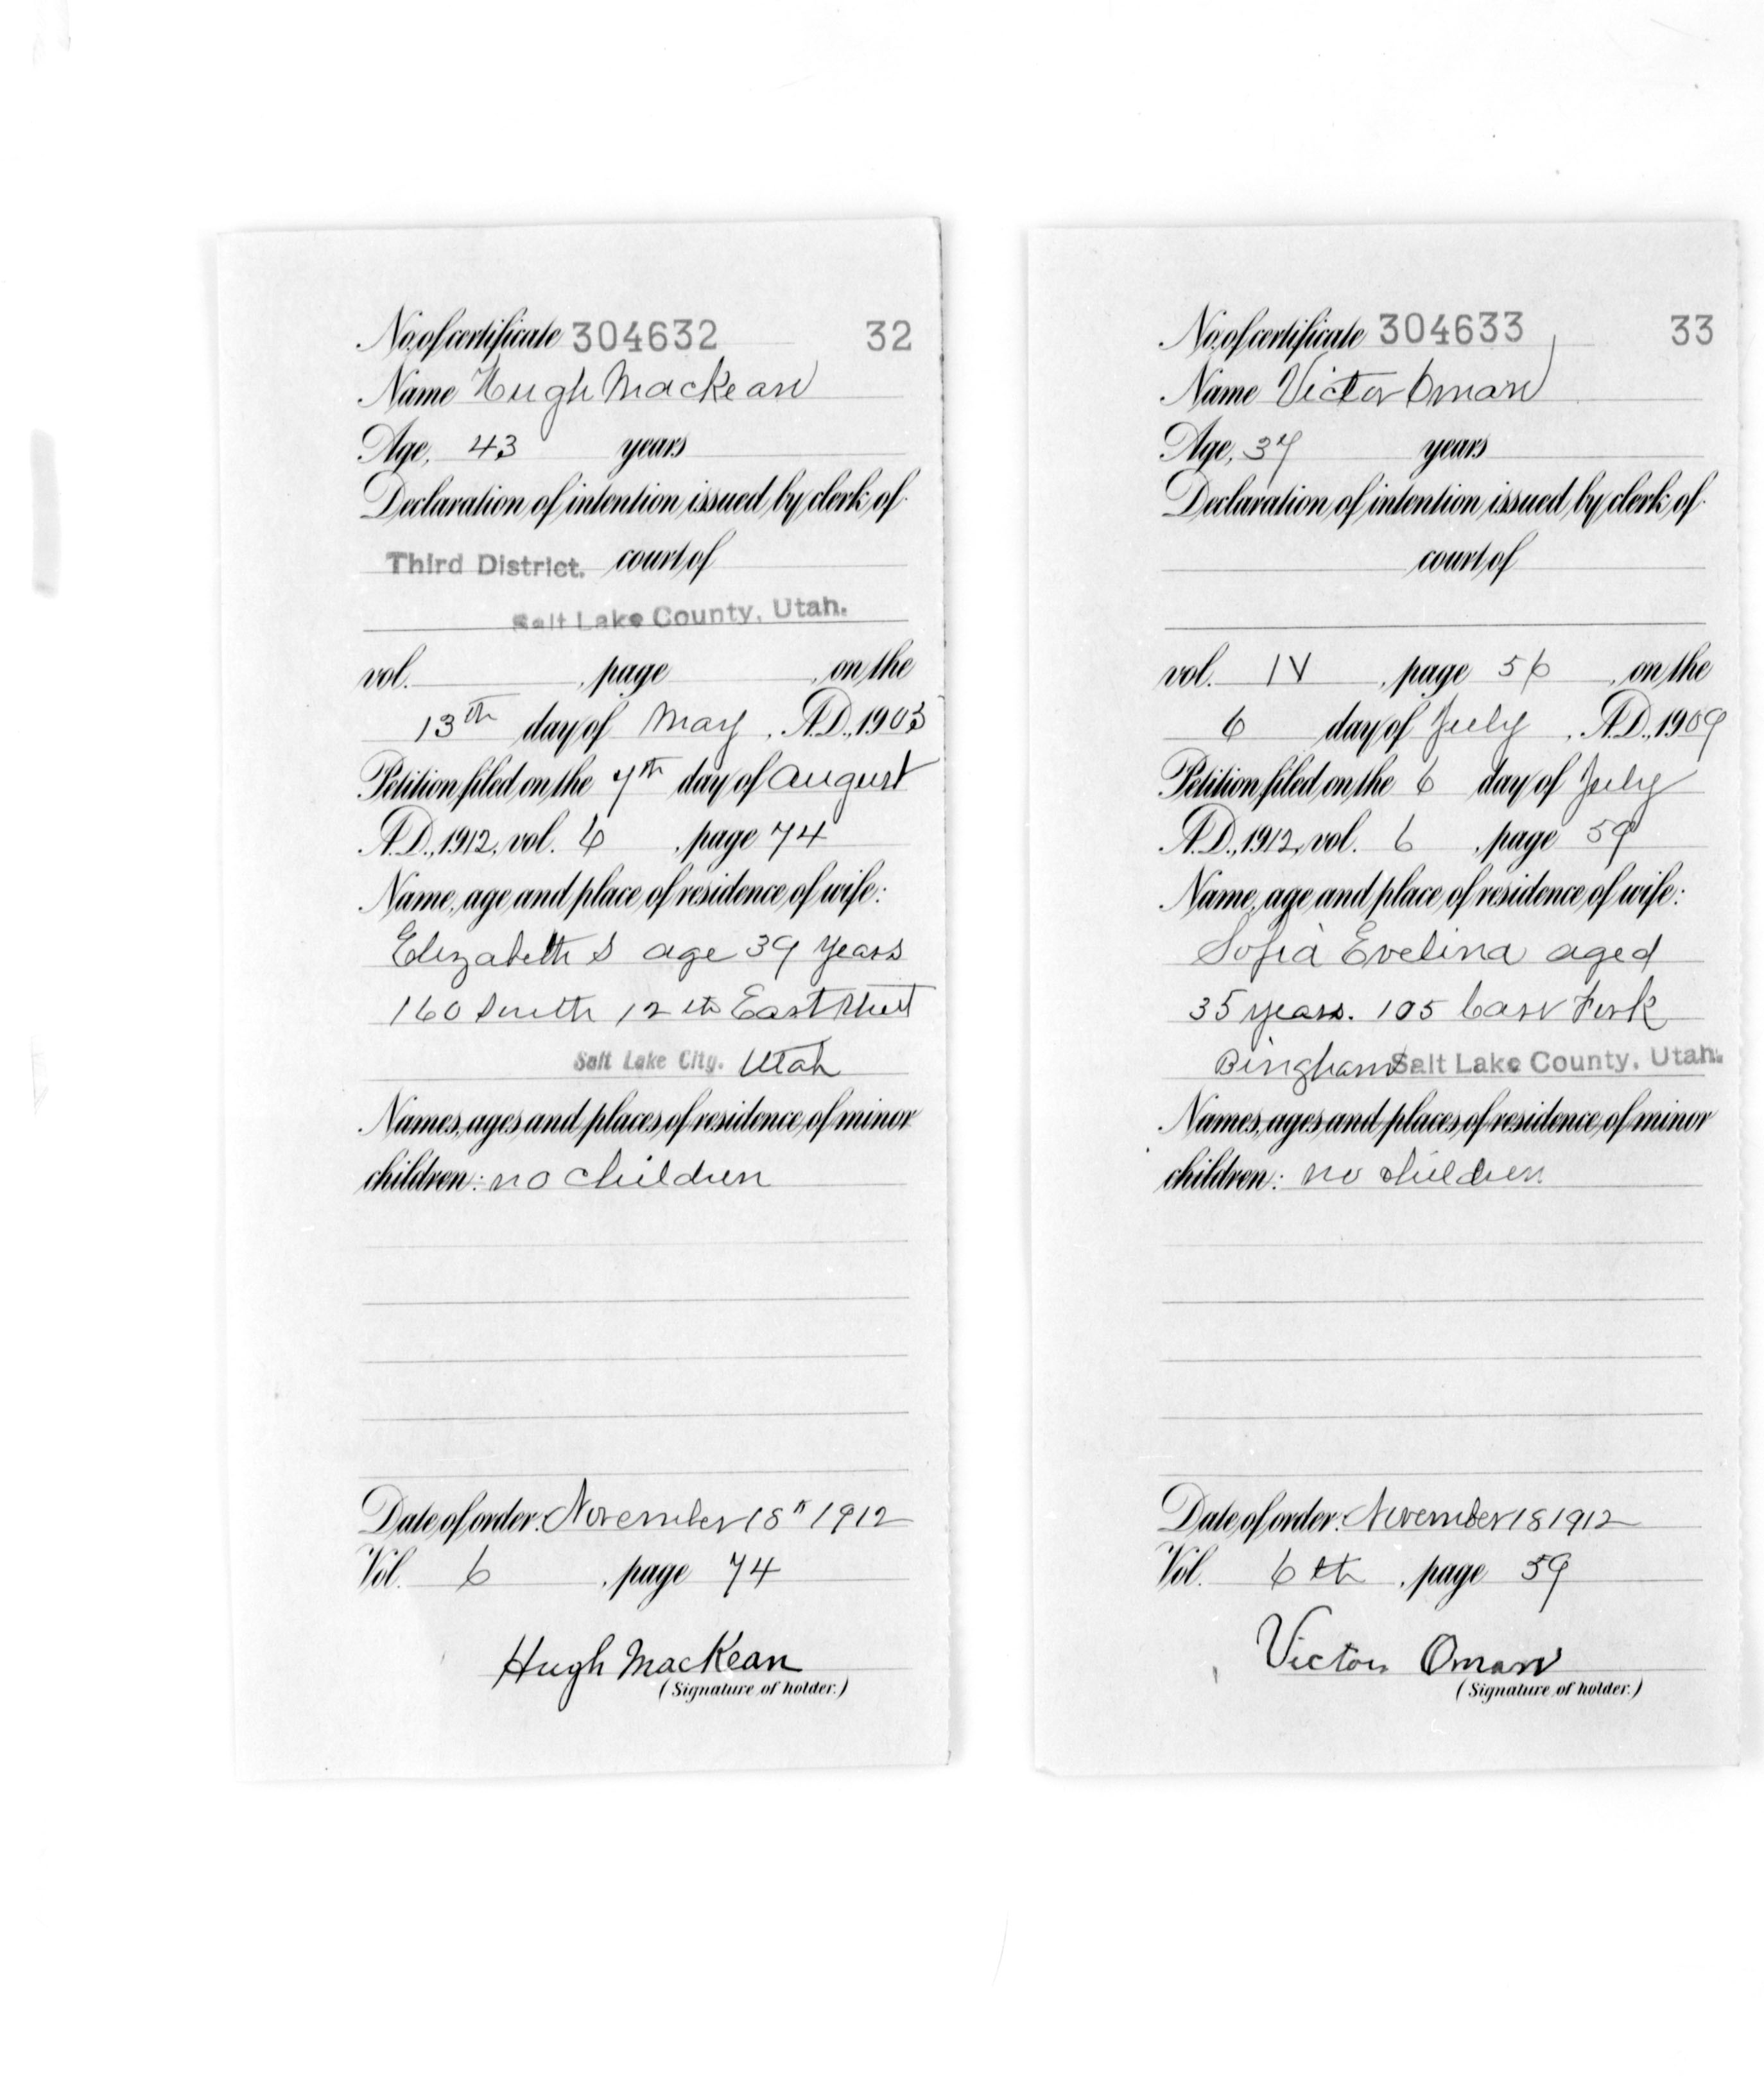 No. of certificate 304632 32
Name Hugh MacKean
Age, 43 years
Declaration of intention issued by clerk of
Third District. court of
Salt Lake County, Utah.
vol. , page , on the
13th day of May , A.D., 1903
Petition filed on the 7th day of August
A.D., 1912, vol. 6 , page 74
Name, age and place of residence of wife:
Elizabeth S age 39 years
160 South 12th East Street
Salt Lake City. Utah
Names, ages and places of residence of minor
children: no children
Date of order: November 18th 1912
Vol. 6 , page 74
Hugh MacKean
(Signature of holder.)
No. of certificate 304633 33
Name Victor Oman
Age, 37 years
Declaration of intention issued by clerk of
court of
vol. IV , page 56 , on the
6 day of July , A.D., 1909
Petition filed on the 6 day of July
A.D., 1912, vol. 6 , page 59
Name, age and place of residence of wife:
Sofia Evelina aged
35 years. 105 Carr Fork
Bingham Salt Lake County, Utah.
Names, ages and places of residence of minor
children: no children
Date of order: November 18 1912
Vol. 6th , page 59
Victor Oman
(Signature of holder.)